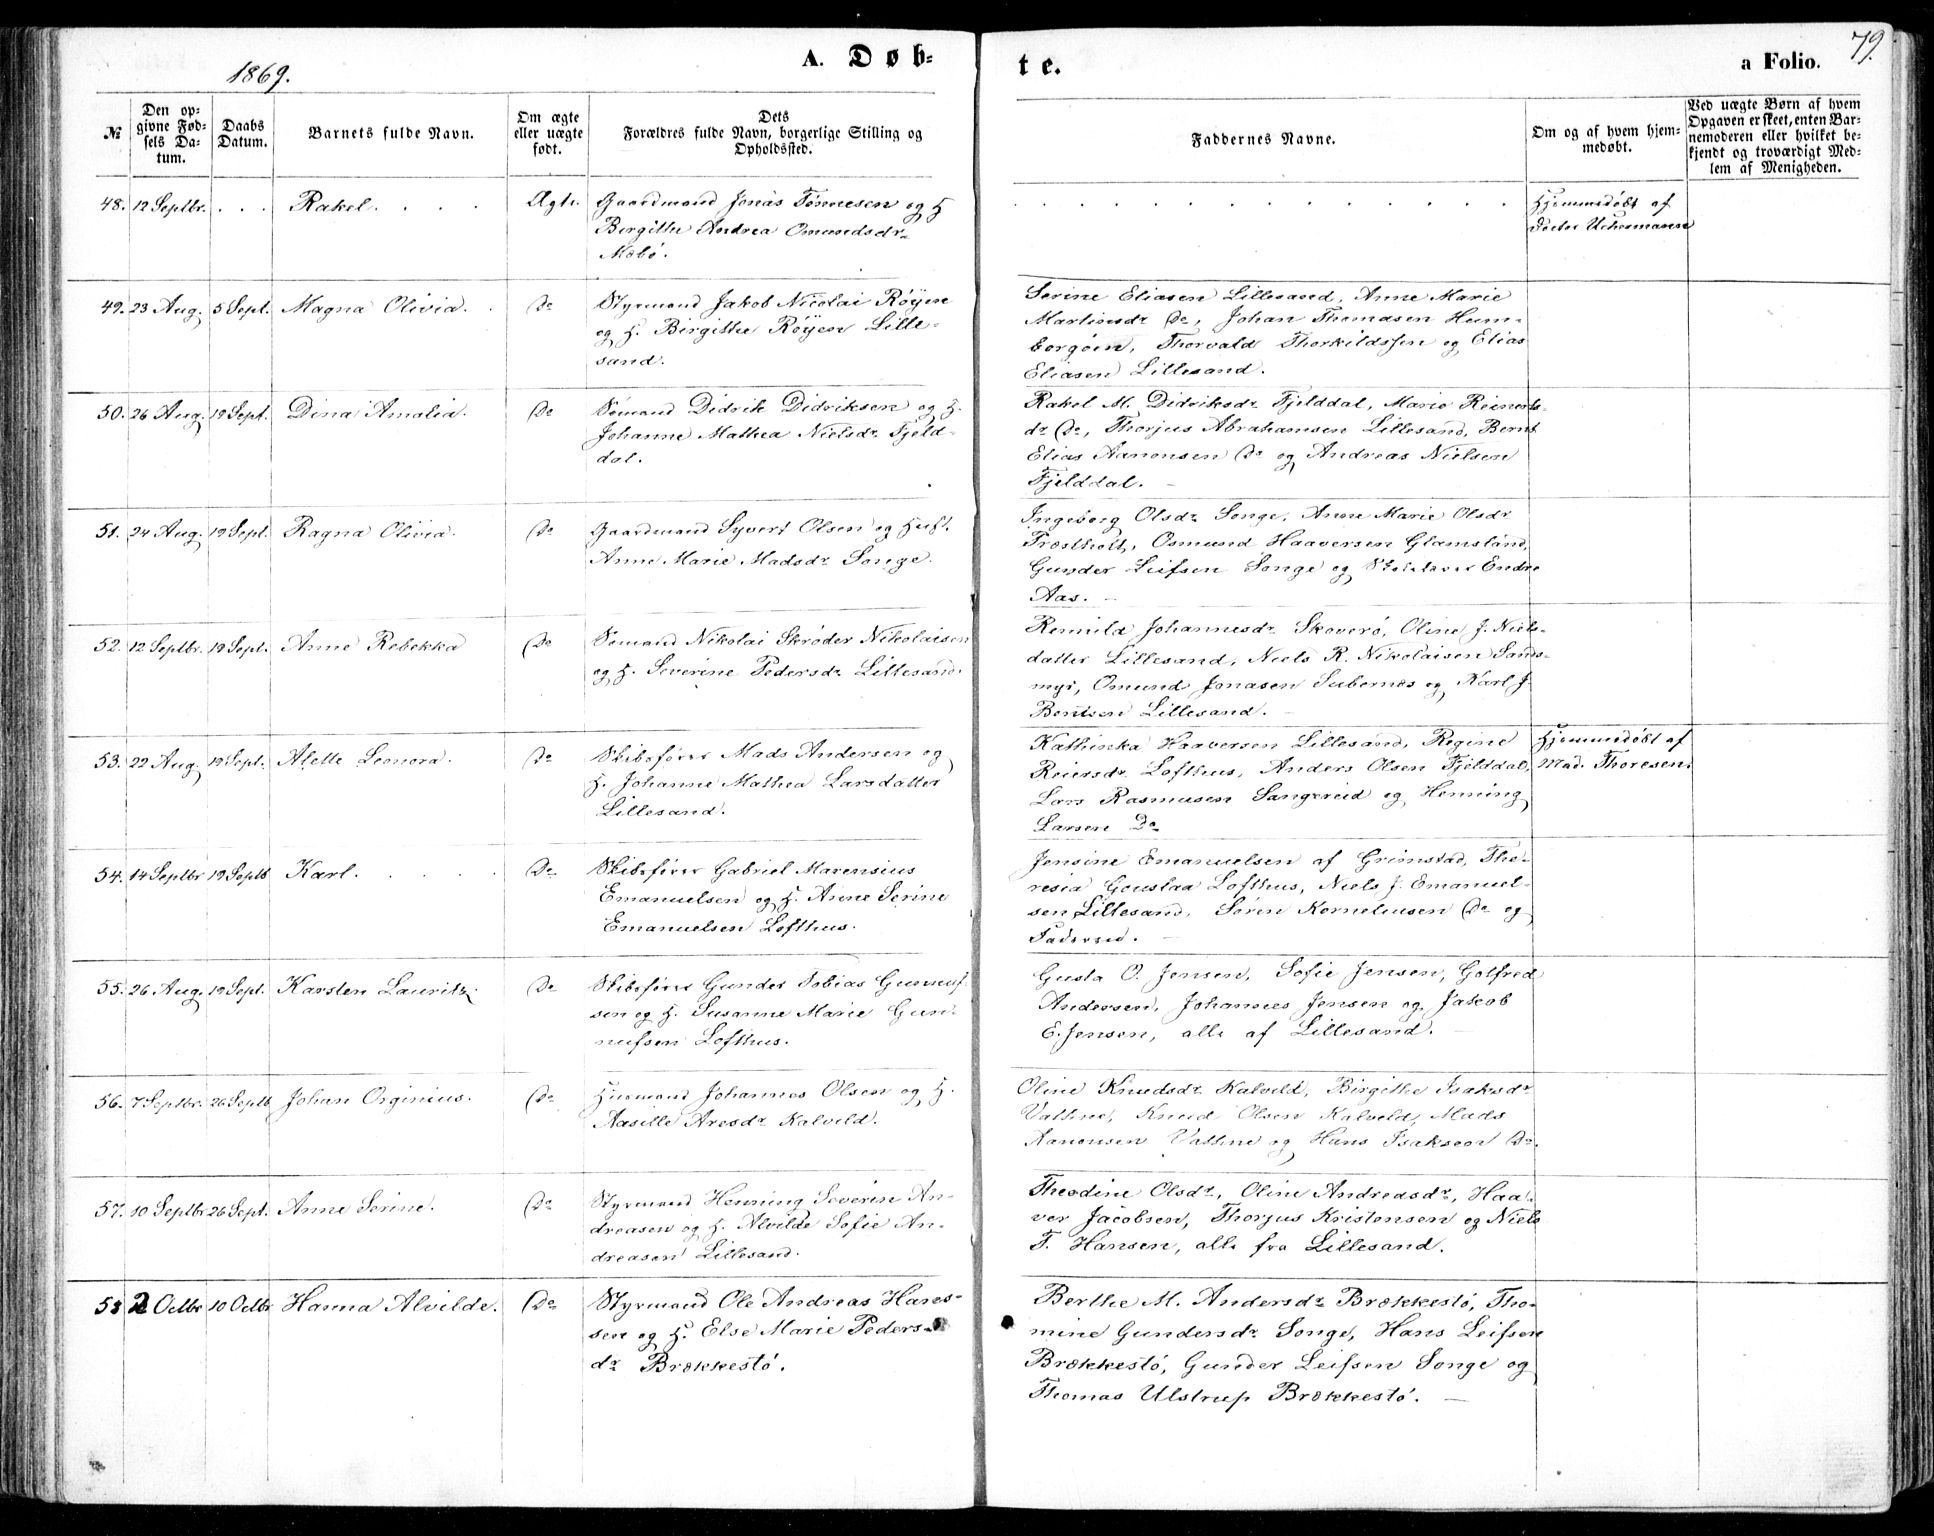 1869.
A. Døb-
te.
a Folio.
79.
№
Den op-
givne Fød-
sels Da-
tum.
Daabs
Datum.
Barnets fulde Navn.
Om ægte
eller uægte
født.
Dets
Forældres fulde Navn, borgerlige Stilling og
Opholdssted.
Faddernes Navne.
Om og af hvem hjem-
medøbt.
Ved uægte Børn af hvem
Opgaven er skeet, enten Bar-
nemoderen eller hvilket be-
kjendt og troværdigt Med-
lem af Menigheden.
48. 12 Septbr. . . . Rakel. . . . Ægte. Gaardmand Jonas Tønnesen og H
Birgithe Andrea Omundsdr
Møbø.
Hjemmedøbt af
Doctor Uchermann
49. 23 Aug. 5 Sept. Magna Olivia. Do Styrmand Jakob Nicolai Röyen
og H. Birgithe Röyen Lille-
sand.
Serine Eliasen Lillesand, Anne Marie
Martinsdr Do, Johan Thomasen Hum-
borgöen, Thorvald Thorkildssen og Elias
Eliasen Lillesand.
50. 26 Aug. 19 Sept. Dina Amalia. Do Sömand Didrik Didriksen og H.
Johanne Mathea Nielsdr Fjeld-
dal.
Rakel M. Didriksdr Fjelddal, Marie Reinerts-
dr Do, Thorjus Abrahamsen Lillesand, Bernt
Elias Aanonsen Do og Andreas Nielsen
Fjelddal.
51. 24 Aug. 19 Sept. Ragna Olivia. Do Gaardmand Syvert Olsen og Hust.
Anne Marie Madsdr Songe.
Ingeborg Olsdr Songe, Anne Marie Olsdr
Præstholt, Osmund Haaversen Glamsland,
Gunder Leifsen Songe og Skolelærer Endre
Aas.
52. 12 Septbr. 19 Sept. Anne Rebekka Do Sömand Nikolai Skröder Nikolaisen
og H. Severine Pedersdr Lillesand.
Remild Johannesdr Skoverö, Oline J. Niels-
datter Lillesand, Niels R. Nikolaisen Sands-
myr, Omund Jonasen Subernes og Karl J.
Bentsen Lillesand.
53. 22 Aug. 19 Sept. Alette Leonora. Do Skibsfører Mads Andersen og
H. Johanne Mathea Larsdatter
Lillesand.
Kathinka Haaversen Lillesand, Regine
Reiersdr Lofthus, Anders Olsen Fjelddal,
Lars Rasmusen Sangereid og Henning
Larsen Do
Hjemmedøbt af
Mad. Thoresen.
54. 14 Septbr 19 Septb Karl. . . . Do Skibsfører Gabriel Marensius
Emanuelsen og H. Anne Serine
Emanuelsen Lofthus.
Jensine Emanuelsen af Grimstad, The-
resia Goustaa Lofthus, Niels J. Emanuel-
sen Lillesand, Sören Korneliusen Do og
Faderen.
55. 26 Aug. 19 Sept. Karsten Lauritz Do Skibsfører Gunder Tobias Gunnuf-
sen og H. Susanne Marie Gun-
nufsen Lofthus.
Gusta O. Jensen, Sofie Jensen, Gotfred
Andersen, Johannes Jensen og Jakob
E. Jensen, alle af Lillesand.
56. 7 Septbr. 26 Septb Johan Orginius. Do Husmand Johannes Olsen og H.
Aasille Aresdr Kalveld.
Oline Knudsdr Kalveld, Birgithe Isaksdr
Vatthne, Knud Olsen Kalveld, Mads
Aanonsen Vatthne og Hans Isaksen Do.
57. 10 Septbr 26 Sept. Anne Serine. Do Styrmand Henning Severin An-
dreasen og H. Alvilde Sofie An-
dreasen Lillesand.
Theodine Olsdr, Oline Andreasdr, Haa-
ver Jacobsen, Thorjus Kristensen og Niels
T. Hansen, alle fra Lillesand.
58 2 Octbr 10 Octbr Hanna Alvilde. Do Styrmand Ole Andreas Hans-
sen og H. Else Marie Peders-
dr Brækkestö.
Berthe M. Andersdr Brækkestö, Tho-
mine Gundersdr Songe, Hans Leifsen
Brækkestö, Gunder Leifsen Songe og
Thomas Ulstrup Brækkestö.